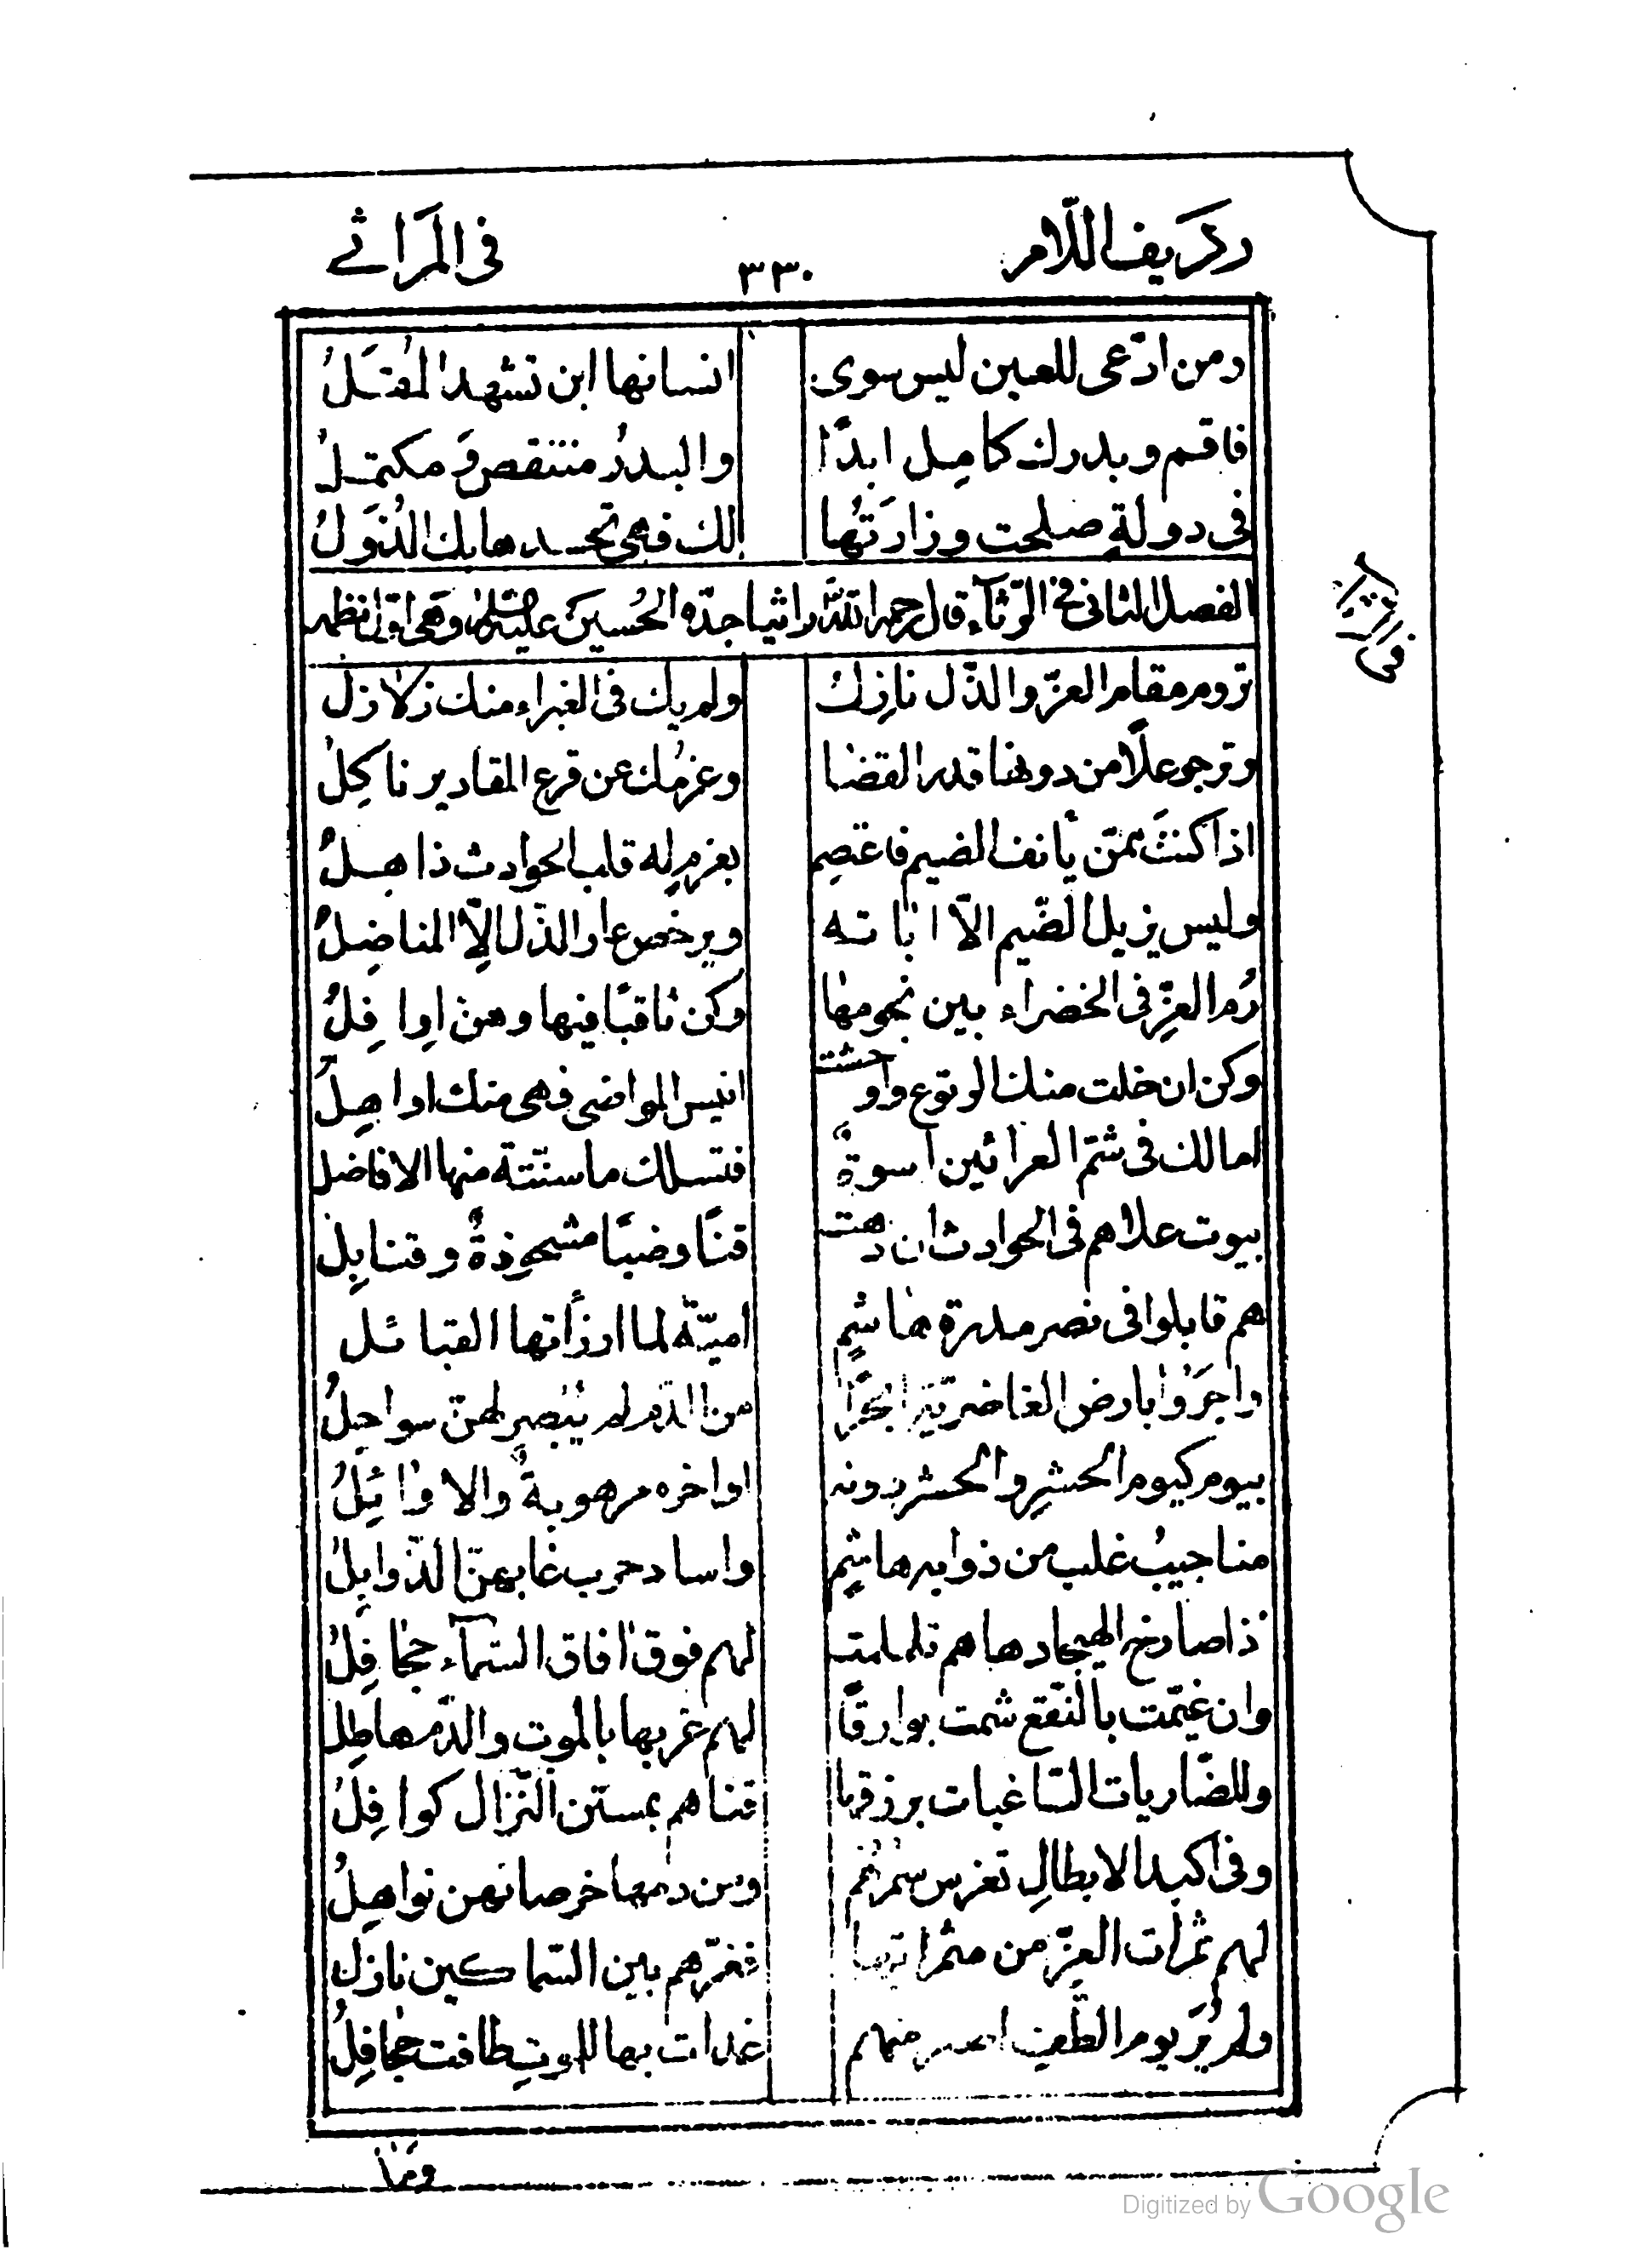 في المراثي ٣٣٠ اللام
ومن ادّعى للعين ليس سوى انسانها ابن تشهد المقَلُ
فاقم وبدرك كامل ابدًا والبدرُ منتقص وَمكتملُ
فى دولةٍ صلحت وزارَتُها لك فهى تحسدها بك الدُوَلُ
الفصل الثانى فى الرّثآء قال رحمه اللّه راثيا جدّه الحُسين عليه السلام وهى اوّل نظمه
فى الرثاء
تروم مقام العزّ والذّل نازل ولم يك فى الغبراء منك زلازل
وترجو علًا من دونها قدر القضا وعزمُك عن قرع المقادير ناكِلُ
اذا كنتَ ممّن يأنف الضيم فاعتصِم بعزمٍ له قلب الحوادث ذاهلُ
وليس يزيل الضّيم الّا اباته ويرخص عار الذّل الّا المناضلُ
رُم العزّ فى الخضراء بين نجومها وكن ثاقبًا فيها وهن اوافِلُ
وكن ان خلت منك الربوع واوحشت انيس المواضى فهى منك اواهِلُ
امالك فى شمّ العرانين اسوةٌ فتسلك ما سنّته منها الافاضل
بيوت علاهم فى الحوادث ان دهت قنًا وضبًا مشحوذةٌ وقنابل
هم قابلوا فى نصر مدرة هاشمٍ اميّة لما ارزأتها القبائل
واجرَوْا بارض الغاضريّة ابحرًا من الدّم لم يُبصر لهنّ سواحلُ
بيوم كيوم الحشرِ والحشر دونه اواخره مرهوبةٌ والاوائلُ
مناجيبُ غلب من ذوابه هاشمٍ واساد حرب غابهنّ الذّوابلُ
اذا صارخ الهيجا دهاهم تلملمت لهم فوق افاق السّمآء جحافِلُ
وان غيّمت بالنّقع شمت بوارقًا لهم غربها بالموت والدّم هاطل
وللضّاريات السّاغبات برزقها قناهم بمستن النّزال كوافِلُ
وفى اكبد الابطالِ تغرس سمرهُم ومن دمها خرصانهن نواهِلُ
لهم ثمرات العزّ من مثمراتها فعزّهم بين السّماكين نازل
ولم يُرَ يوم الطّعن منهم غداة بها للموت طافت جحافِلُ
وما
Digitized by Google